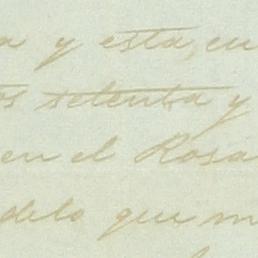 a y esta, en
os setenta y
en el Rosa
delo que m